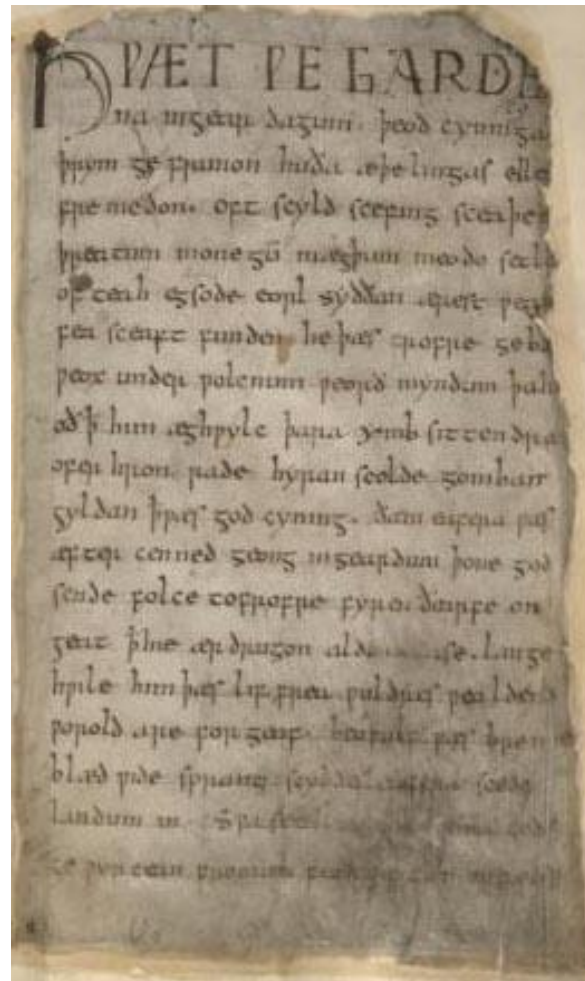 HǷÆT ǷE GARDE
na ingear dagum. þeod cyninga
þrym ge frunon huða æþelingas elle
fre medon. oft scyld scefing sceaþe
þreatum monegū mægþum meodo setla
of teah egsode eorl syððan ærest ƿear
fea sceaft funden he þæs frofre geba
ƿeox under ƿolcnum ƿeorð myndum þah
oð ꝥ him æghƿylc þara ymb sittendra
ofer hron rade hyran scolde gomban
gyldan þæt ƿæs god cyning. ðam eafera ƿæs
æfter cenned geong ingeardum þone god
sende folce tofrofre fyren ðearfe on
geat ꝥ hie ær drugon aldor ase. lange
hƿile him þæs lif frea ƿuldres ƿealdend
ƿorold are for geaf. beoƿulf ƿæs breme
blæd ƿide sprang scyldes eafera scede
landum in. sƿa